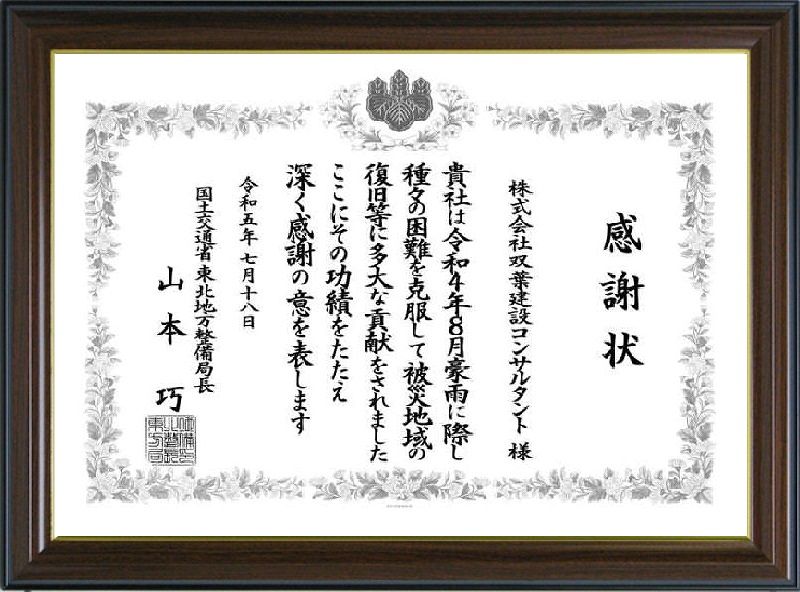 感謝状
株式会社双葉建設コンサルタント 様
貴社は令和4年8月豪雨に際し
種々の困難を克服して被災地域の
復旧等に多大な貢献をされました
ここにその功績をたたえ
深く感謝の意を表します
令和五年 七月十八日
国土交通省 東北地方整備局長
山本 巧